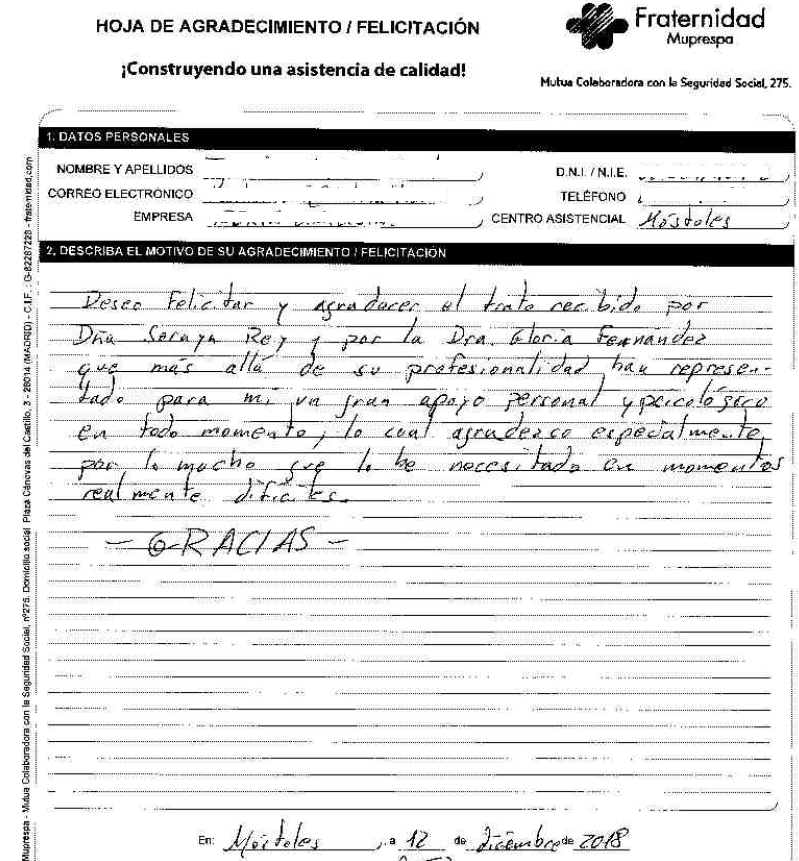 HOJA DE AGRADECIMIENTO / FELICITACIÓN
Fraternidad
Muprespa
¡Construyendo una asistencia de calidad!
Mutua Colaboradora con la Seguridad Social, 275.
1. DATOS PERSONALES
NOMBRE Y APELLIDOS
D.N.I. / N.I.E.
CORREO ELECTRÓNICO
TELÉFONO
EMPRESA
CENTRO ASISTENCIAL Móstoles
2. DESCRIBA EL MOTIVO DE SU AGRADECIMIENTO / FELICITACIÓN
Deseo Felicitar y agradecer el trato recibido por
Dña Soraya Rey y por la Dra. Gloria Fernández
que más allá de su profesionalidad han represen-
tado para mi un gran apoyo personal y psicológico
en todo momento, lo cual agradezco especialmente,
por lo mucho que lo he necesitado en momentos
realmente difíciles.
- GRACIAS -
En: Móstoles, a 12 de diciembre de 2018
Muprespa - Mutua Colaboradora con la Seguridad Social, nº275. Domicilio social Plaza Cánovas del Castillo, 3 - 28014 (MADRID) - C.I.F. : G-82287228 - fraternidad.com